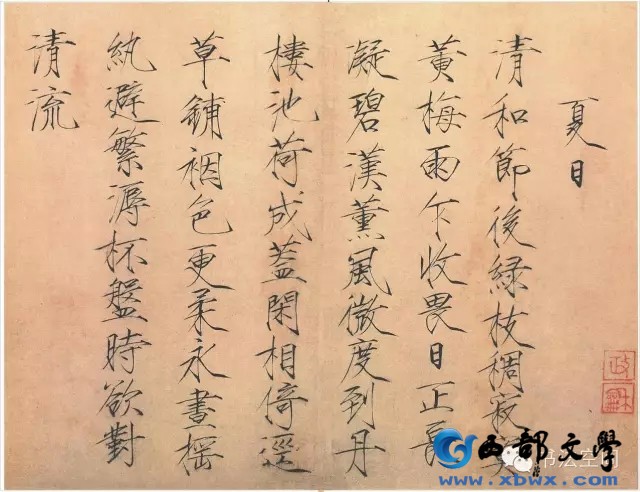 夏日
清和節後緑枝稠寂寞
黃梅雨乍收畏日正長
凝碧漢薰風微度到丹
樓池荷成蓋閑相倚逕
草鋪裀色更柔永晝搖
紈避繁溽杯盤時欲對
清流
政龢
西部文學
www.xbwx.com
书法空间